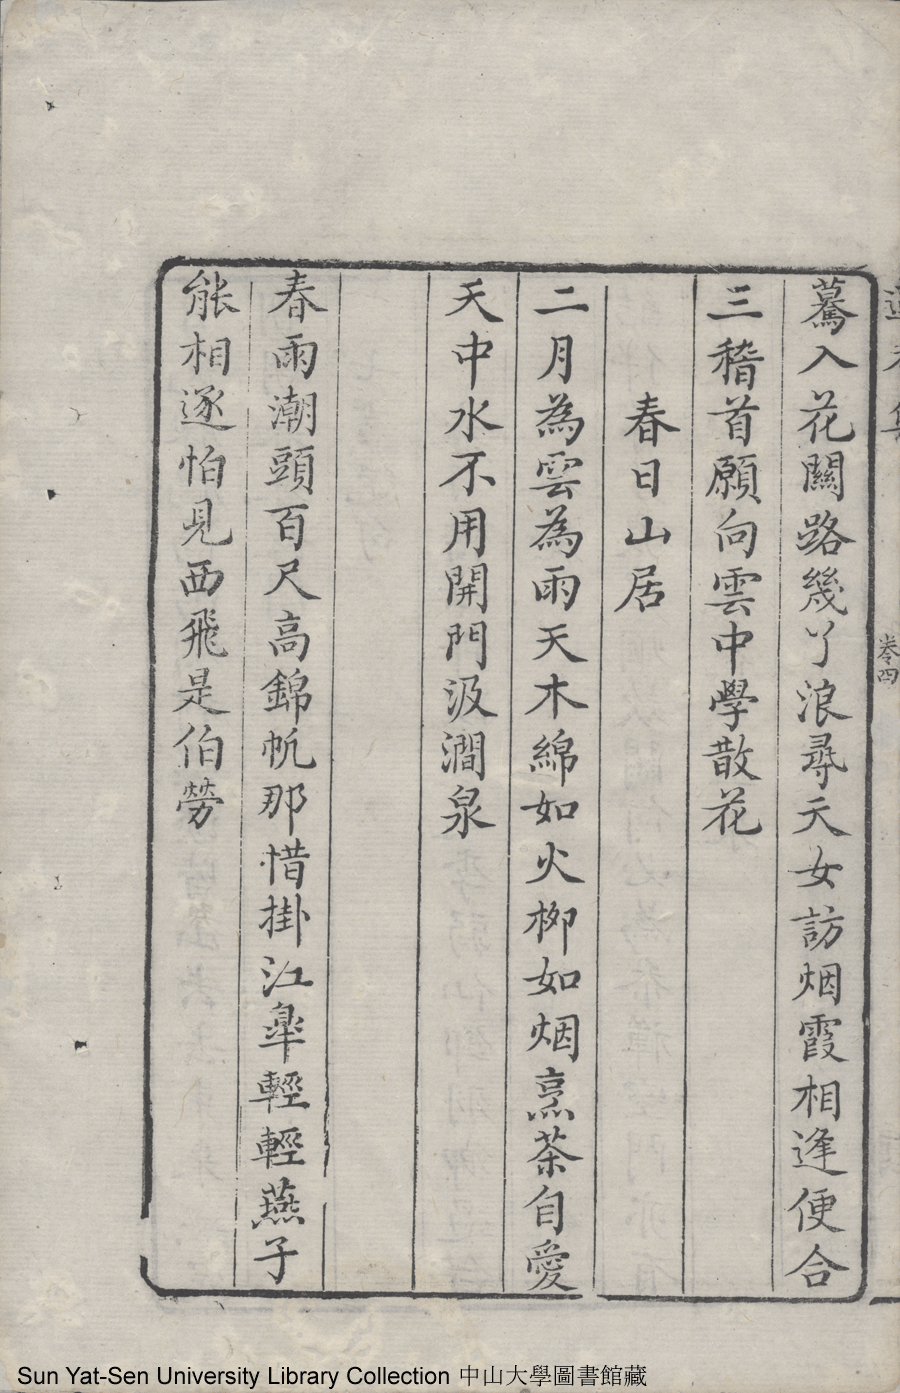 驀入花關路幾丫浪尋天女訪烟霞相逢便合
三稽首願向雲中學散花
春日山居
二月為雲為雨天木綿如火柳如烟烹茶自愛
天中水不用開門汲澗泉
春雨潮頭百尺高錦帆那惜掛江皐輕輕燕子
能相逐怕見西飛是伯勞
卷四
Sun Yat-Sen University Library Collection 中山大學圖書館藏